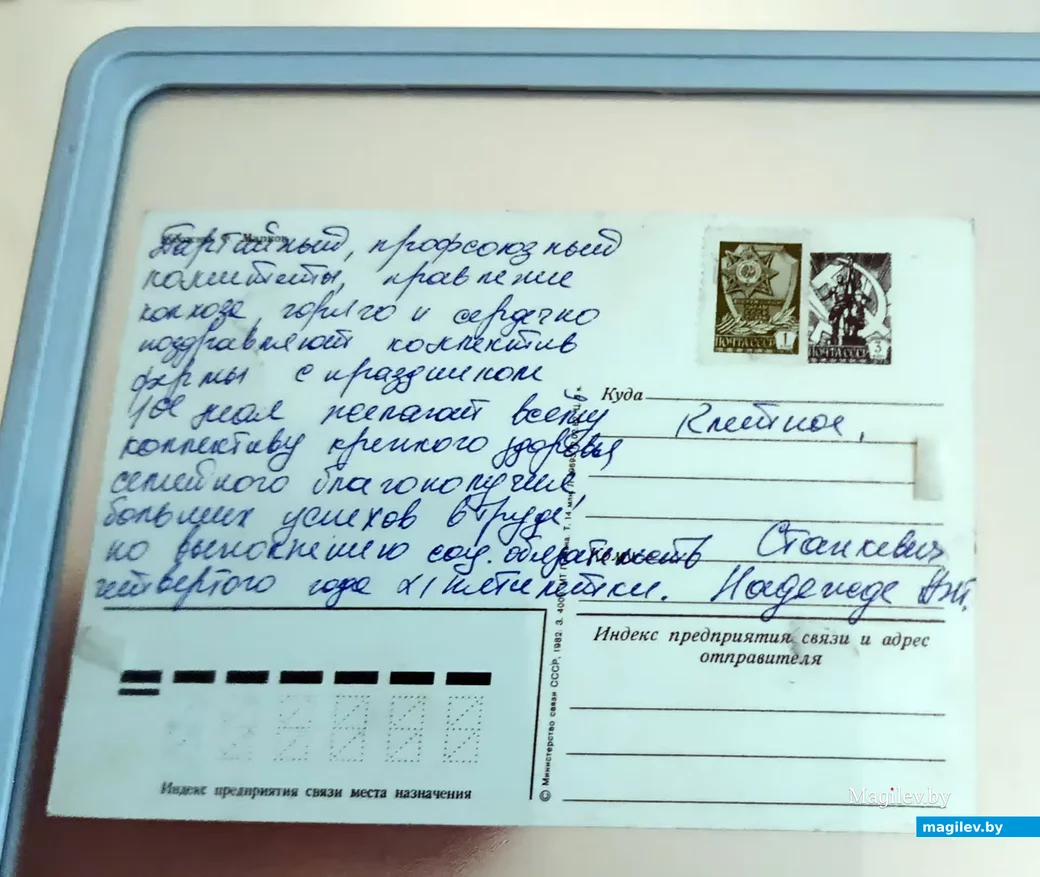 Художник Ф. Марков
Партийный, профсоюзный
комитеты, правление
колхоза горячо и сердечно
поздравляют коллектив
фермы с праздником
1ое мая желают всему
коллективу крепкого здоровья
семейного благополучия,
больших успехов в труде
по выполнению соц. обязательств
четвертого года XI пятилетки.
ПОЧТА СССР 1
ПОЧТА СССР 3
Куда
Клетное,
Станкевич
Надежде Ант.
Индекс предприятия связи и адрес
отправителя
Индекс предприятия связи места назначения
© Министерство связи СССР, 1982. З.
Magilev.by
magilev.by